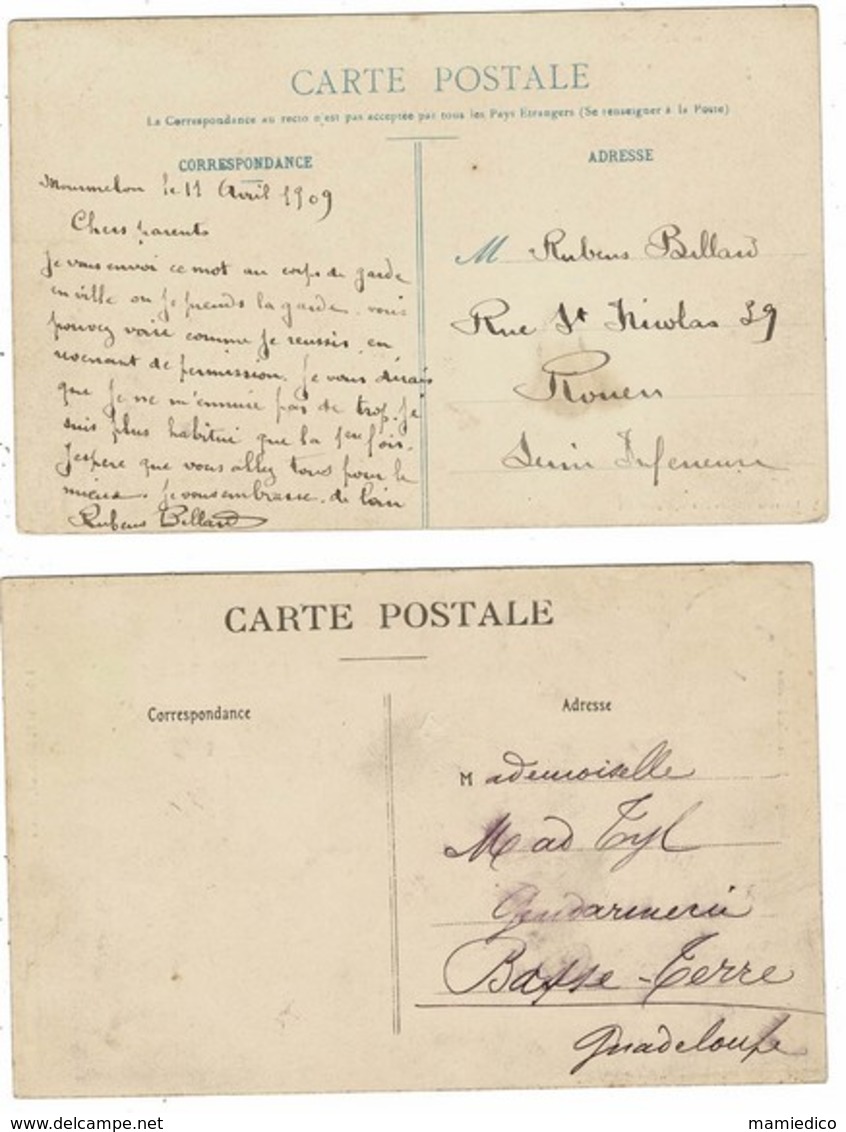 CARTE POSTALE
La Correspondance au recto n'est pas acceptée par tous les Pays Etrangers (Se renseigner à la Poste)
CORRESPONDANCE
Mourmelon le 11 Avril 1909
Chers parents
Je vous envoi ce mot au corps de garde
en ville ou je prends la garde. vous
pouvez voire comme je reussis, en
revenant de permission. Je vous dirais
que je ne m'ennuie pas de trop. je
suis plus habitué que la 1ere fois.
J'espere que vous allez tous pour le
mieux. Je vous embrasse. de loin
Rubens Billard
ADRESSE
M Rubens Billard
Rue St Nicolas 39
Rouen
Seine Inferieure
CARTE POSTALE
Correspondance
Adresse
Mademoiselle
Mad Tyl
Gendarmerie
Basse-Terre
Guadeloupe
mamiedico